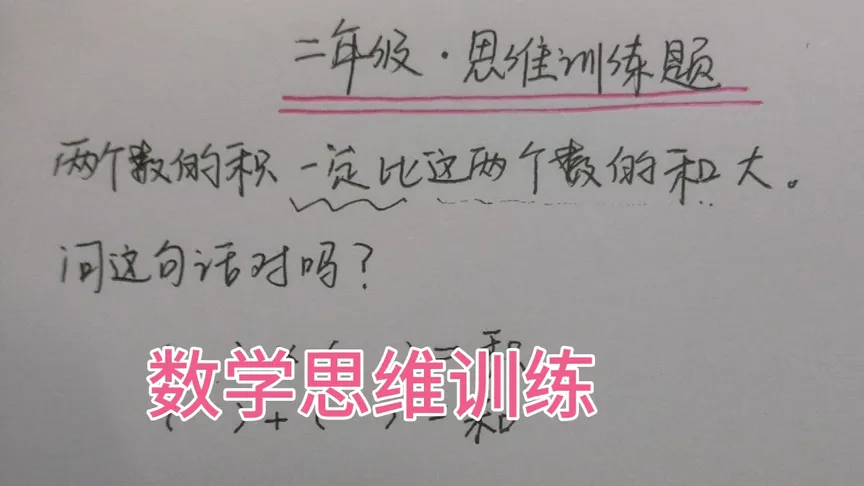 二年级·思维训练题
两个数的积一定比这两个数的和大。
问这句话对吗？
数学思维训练
)+( )=和